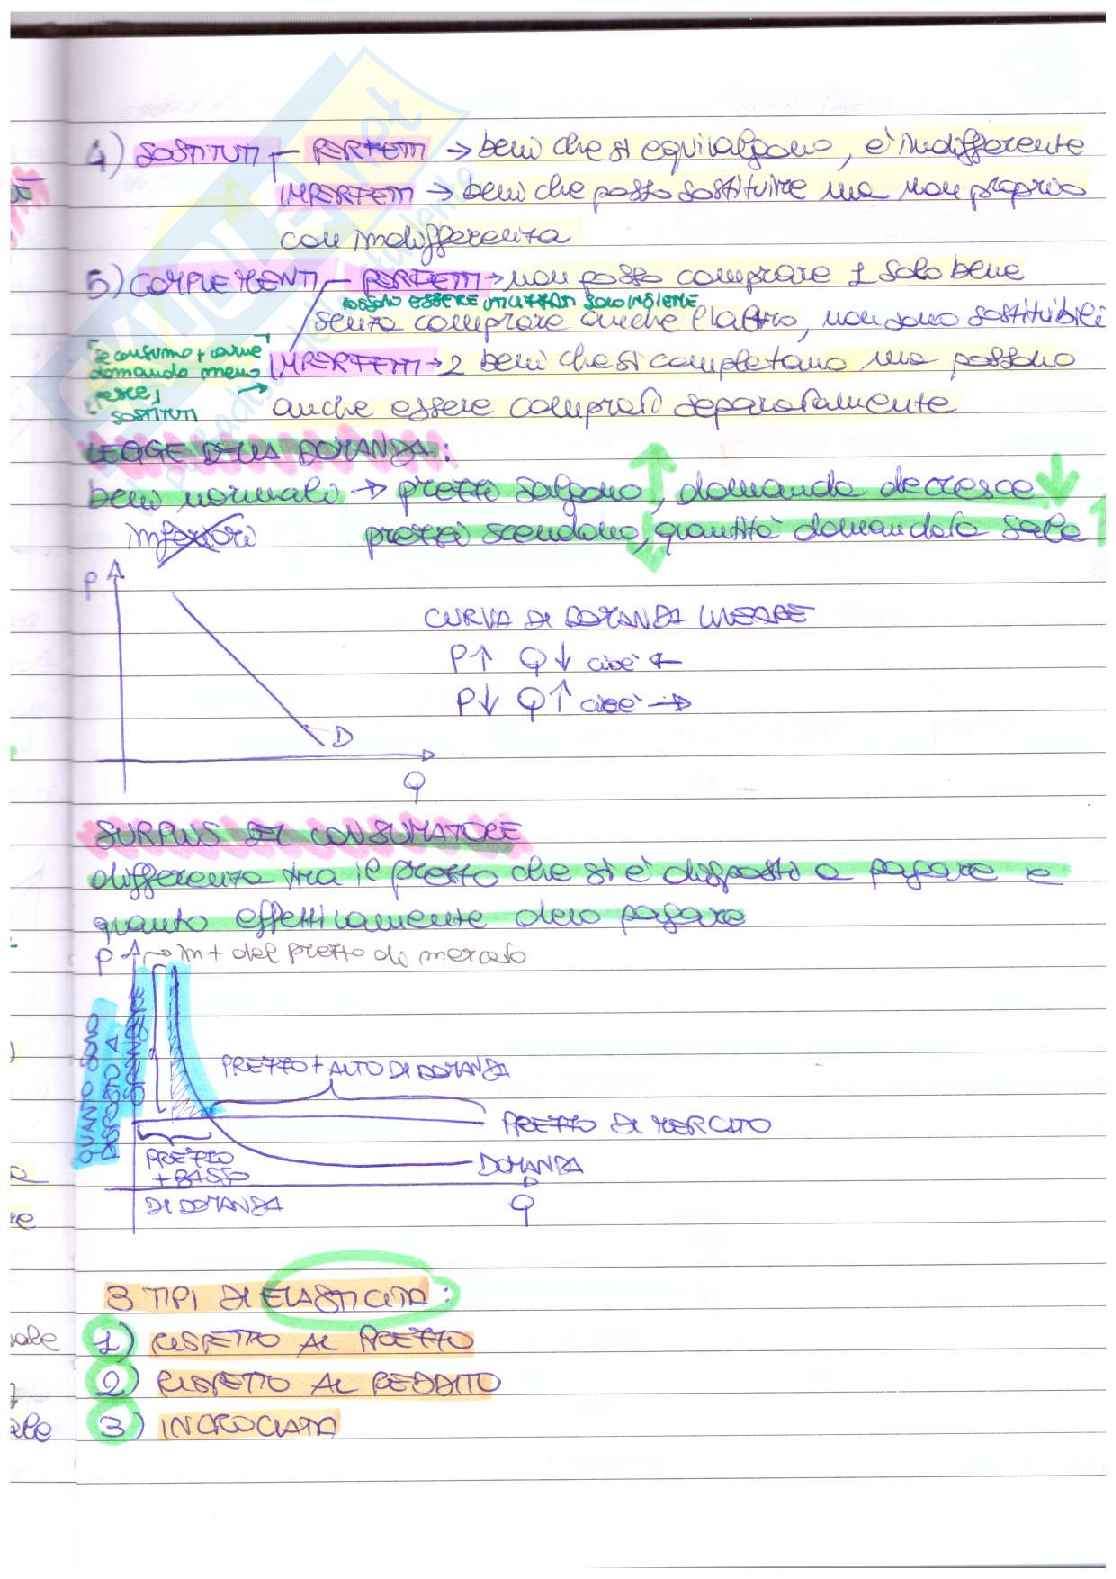 4) SOSTITUTI - PERFETTI → beni che si equivalgono, è indifferente
IMPERFETTI → beni che posso sostituire ma non proprio
con indifferenza
5) COMPLEMENTI - PERFETTI → non posso comprare 1 solo bene
POSSONO ESSERE UTILIZZATI SOLO INSIEME
senza comprare anche l'altro, non sono sostituibili
se consumo + carne
domando meno
pesce,
SOSTITUTI
IMPERFETTI → 2 beni che si completano ma possono
anche essere comprati separatamente
LEGGE DELLA DOMANDA:
beni normali → prezzi salgono, domanda decresce
inferiori prezzi scendono, quantità domandata sale
P
CURVA DI DOMANDA LINEARE
P↑ Q↓ cioè ←
P↓ Q↑ cioè →
D
Q
SURPLUS DEL CONSUMATORE
differenza tra il prezzo che si è disposti a pagare e
quanto effettivamente devo pagare
P → in + del prezzo di mercato
QUANTO SONO
DISPOSTO A
SPENDERE
PREZZO + ALTO DI DOMANDA
PREZZO DI MERCATO
PREZZO
+ BASSO
DI DOMANDA
DOMANDA
Q
3 TIPI DI ELASTICITÀ:
1) RISPETTO AL PREZZO
2) RISPETTO AL REDDITO
3) INCROCIATA